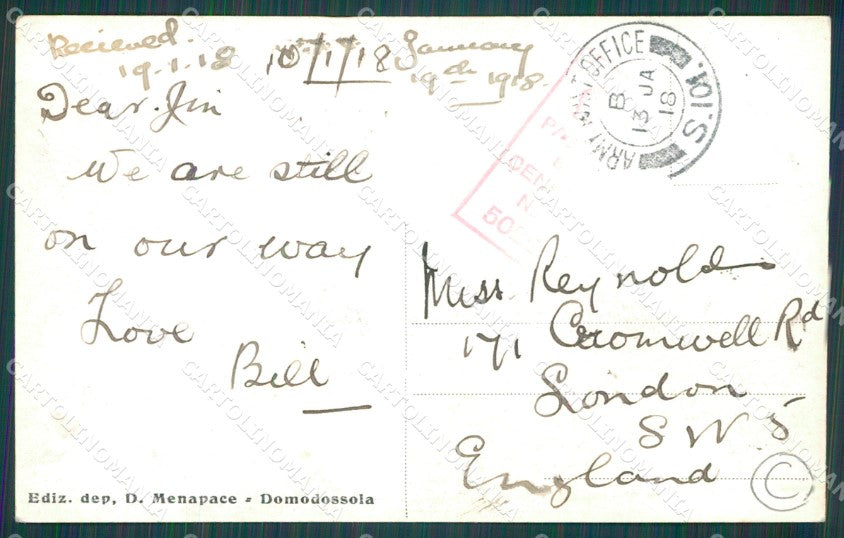 Recieved.
19.1.18
10/1/18
January
19th 1918.
Dear Jim
We are still
on our way
Love
Bill
ARMY POST OFFICE
S.101.
B
13 JA
18
PA
CEN
N
50
Miss Reynolds
171 Cromwell Rd
London
S W 5
England
C
Ediz. dep, D. Menapace - Domodossola
CARTOLINOMANIA